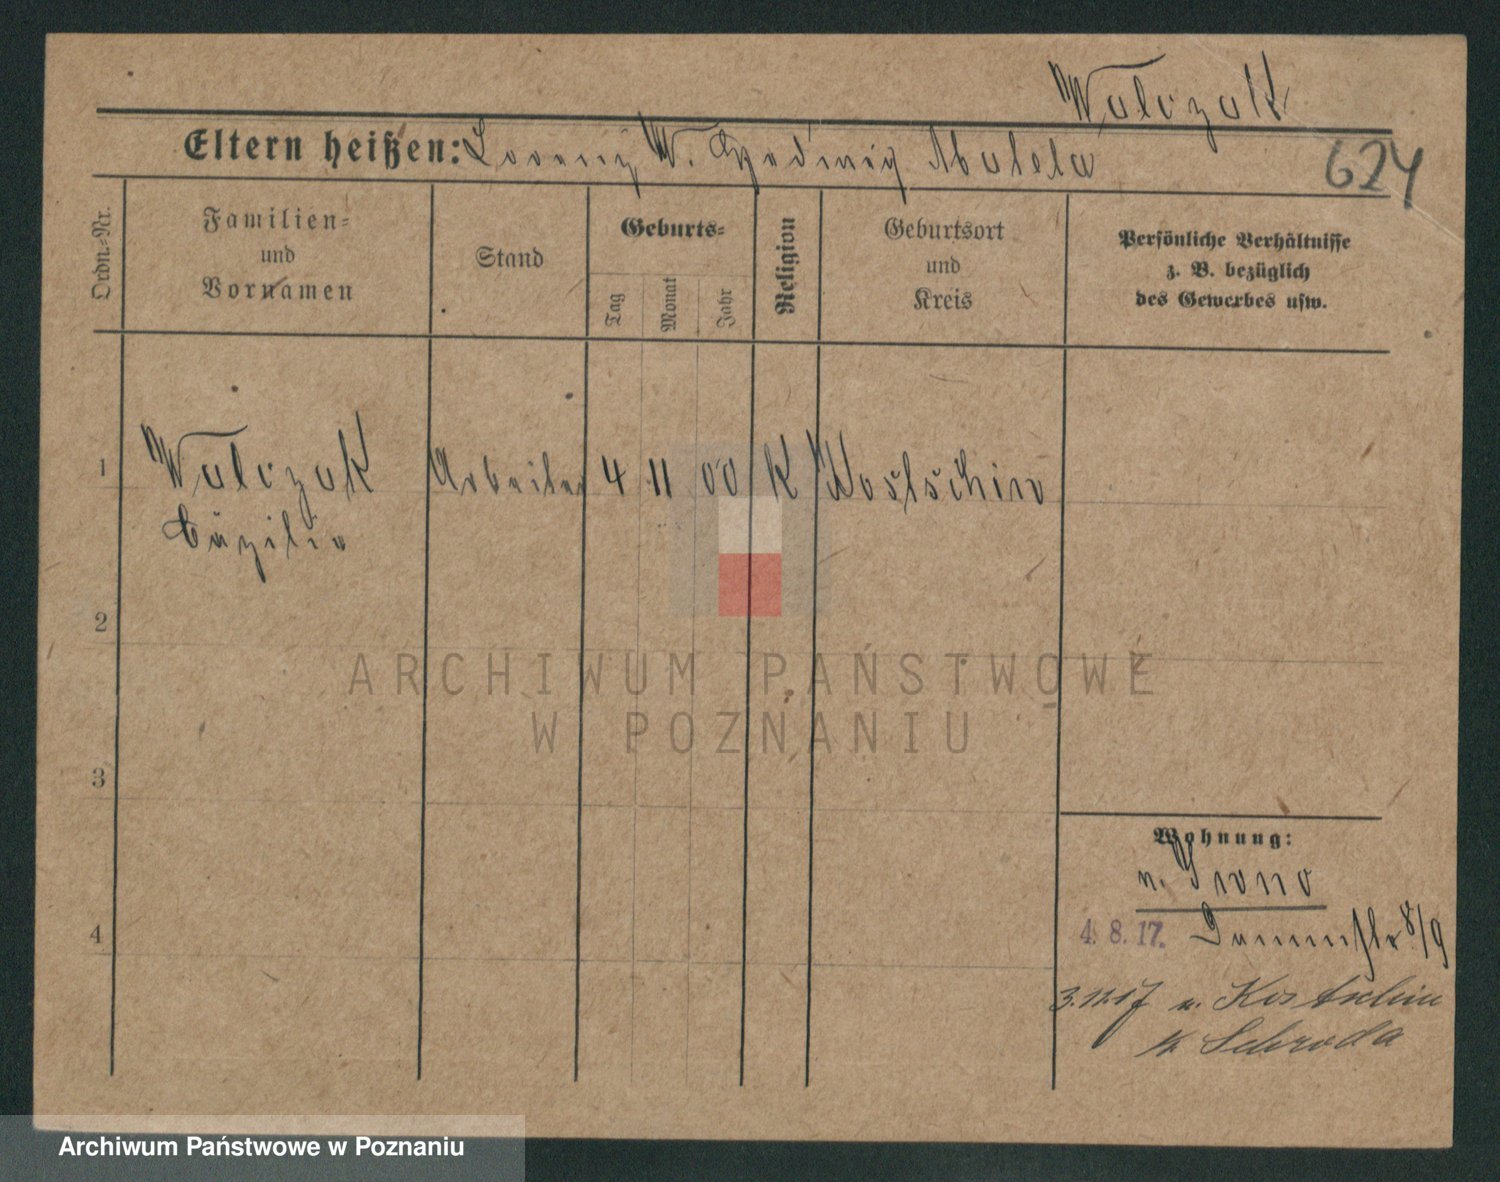 Walczak
Eltern heißen: Lorenz W. Hedwig Matela
624
Ordn.-Nr.
Familien-
und
Vornamen
Stand
Geburts-
Tag
Monat
Jahr
Religion
Geburtsort
und
Kreis
Persönliche Verhältnisse
z. B. bezüglich
des Gewerbes usw.
1 Walczak Arbeiter 4 11 00 K Kostschin
Cäzilie
2
ARCHIWUM PAŃSTWOWE
W POZNANIU
3
Wohnung:
n.
4
4. 8. 17. Dammstr 8/9
n. Kostschin
Kr Schroda
Archiwum Państwowe w Poznaniu